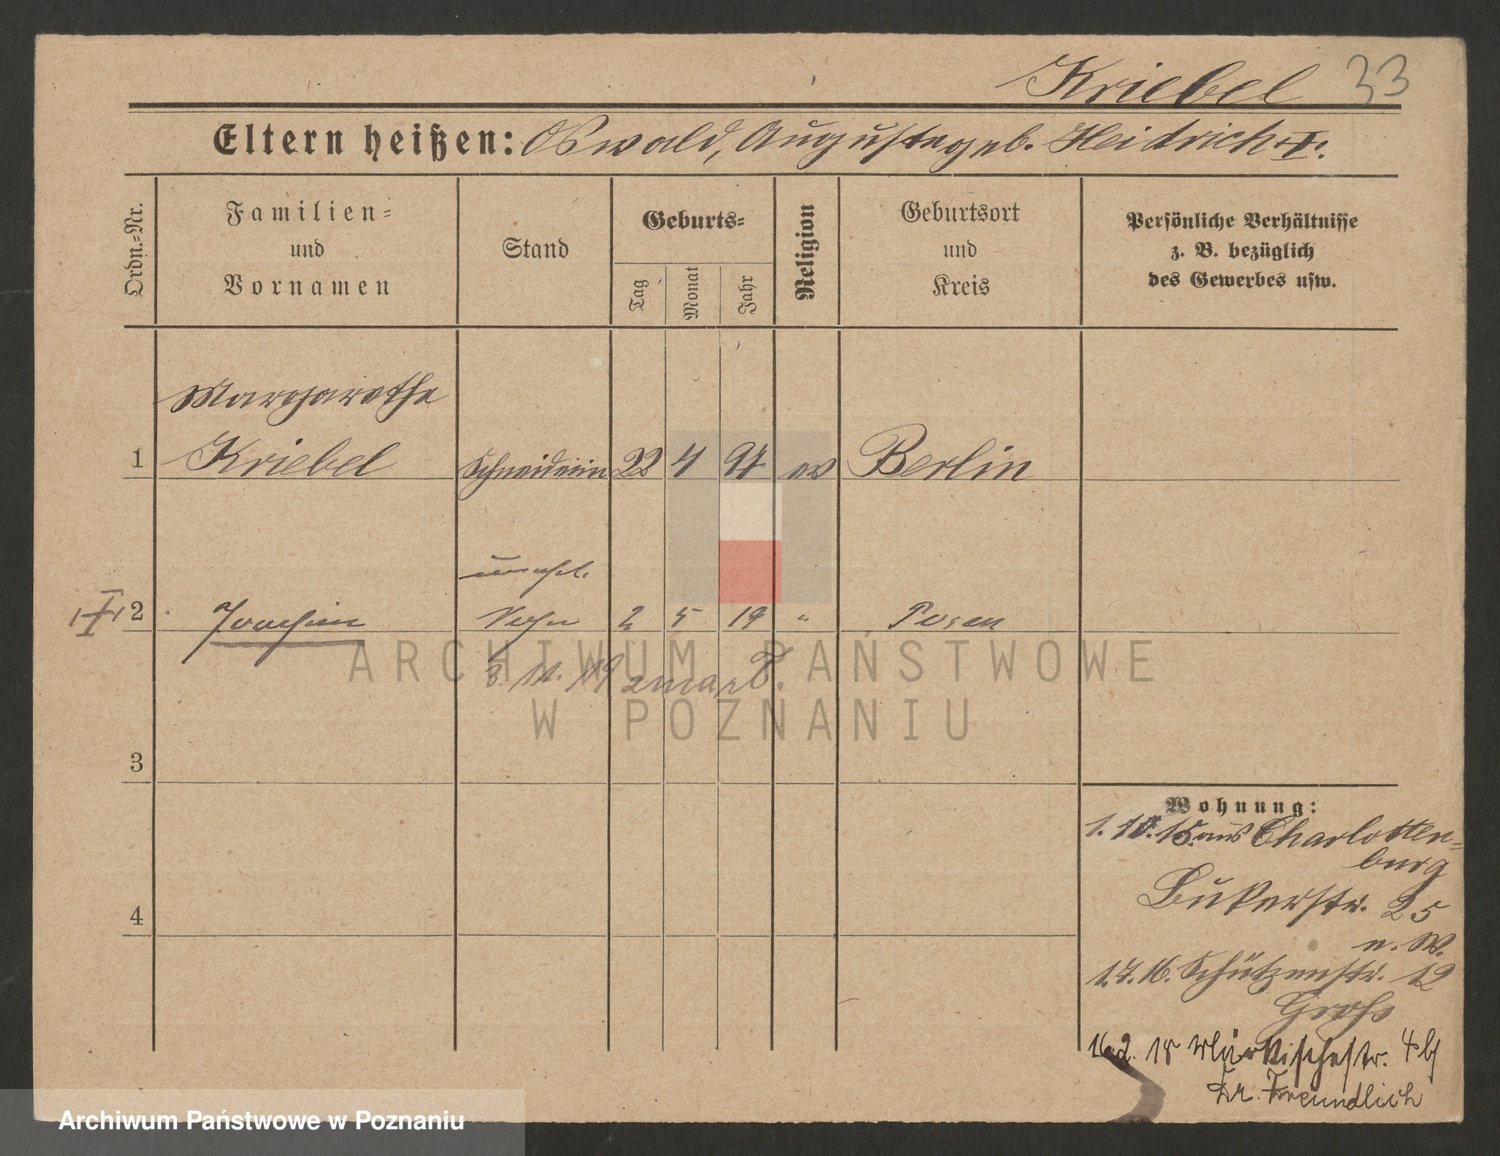 Kriebel 33
Eltern heißen: Oswald, Auguste geb. Heidrich
Ordn.-Nr.
Familien-
und
Vornamen
Stand
Geburts-
Tag
Monat
Jahr
Religion
Geburtsort
und
Kreis
Persönliche Verhältnisse
z. B. bezüglich
des Gewerbes usw.
Margarethe
1 Kriebel Schneiderin 22 4 94 ev Berlin
unehel.
2 Joachim Sohn 2 5 19 " Posen
3. 11. 19
ARCHIWUM PAŃSTWOWE
W POZNANIU
3
4
Wohnung:
1. 10. 15 aus Charlotten-
burg
Bukerstr. 25
n. W.
1.7.16. Schützenstr. 12
Groß
16.2. 18 Märkischestr. 4b
Dr. Freundlich
Archiwum Państwowe w Poznaniu